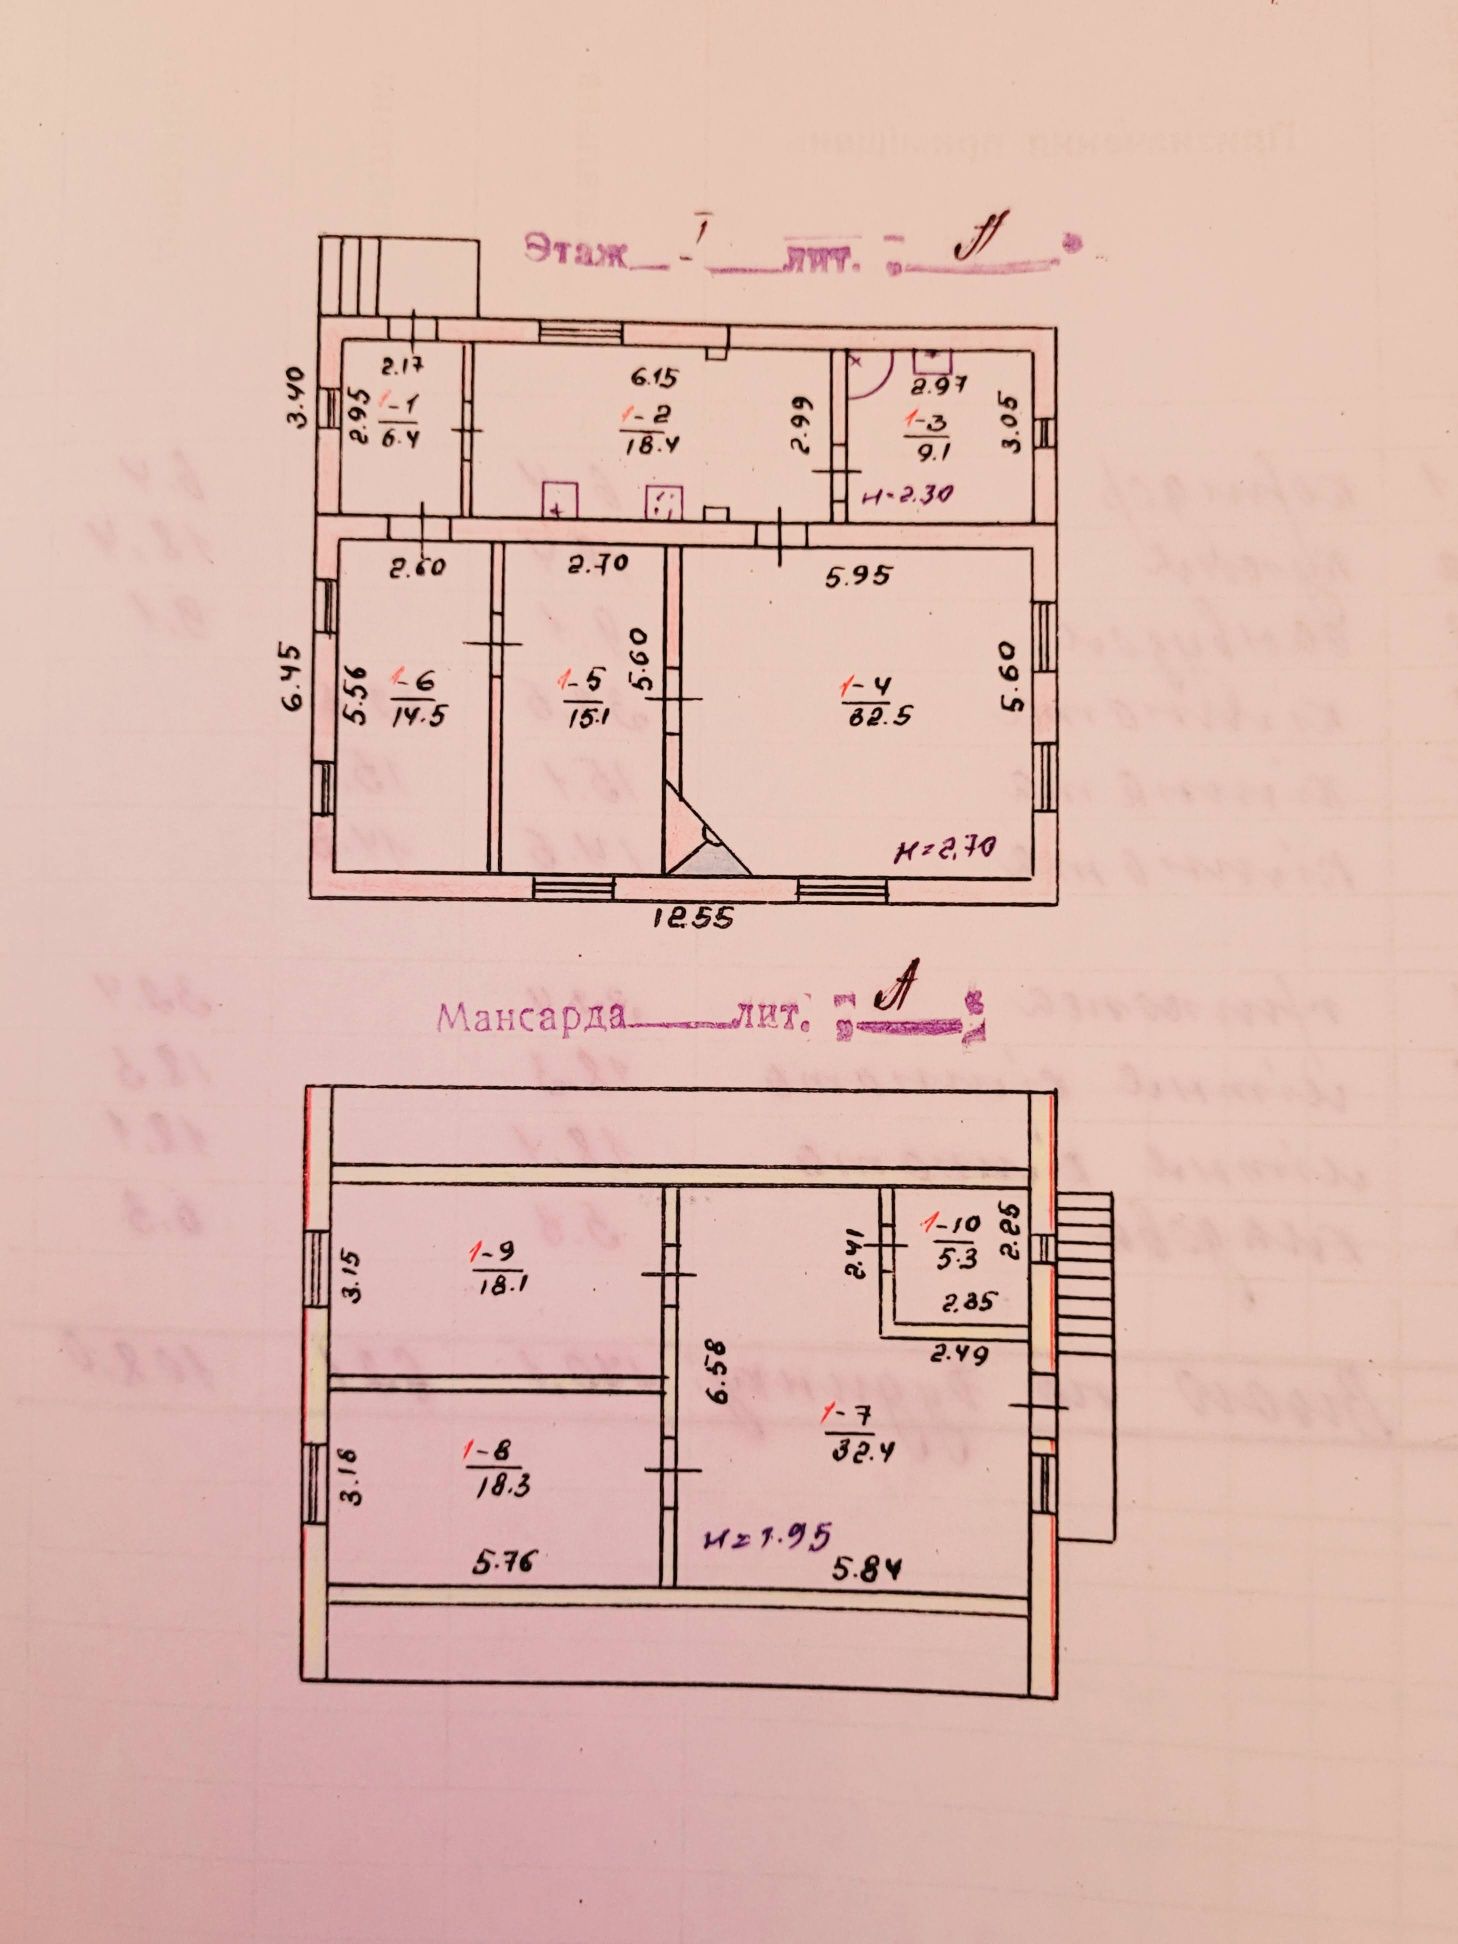 Этаж - 1 лит. "А"
2.17
3.40
2.95
1-1
6.4
6.15
1-2
18.4
2.99
2.97
1-3
9.1
3.05
н=2.30
2.60
2.70
5.95
6.45
5.56
1-6
14.5
1-5
15.1
5.60
1-4
32.5
5.60
н=2.70
12.55
Мансарда лит. "А"
3.15
1-9
18.1
2.41
1-10
5.3
2.25
2.35
2.49
6.58
1-7
32.4
3.18
1-8
18.3
н=1.95
5.76
5.84